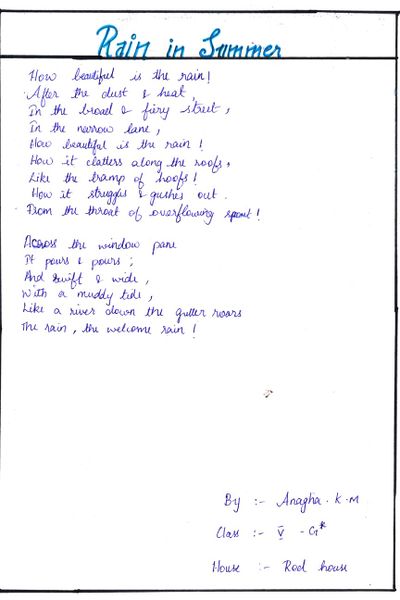 Rain in Summer
How beautiful is the rain!
After the dust & heat,
In the broad & fiery street,
In the narrow lane,
How beautiful is the rain!
How it clatters along the roofs,
Like the tramp of hoofs!
How it struggles & gushes out.
From the throat of overflowing spout!
Across the window pane
It pours & pours;
And swift & wide,
With a muddy tide,
Like a river down the gutter roars
The rain, the welcome rain!
By :- Anagha.K.M
Class :- V - G*
House :- Red house